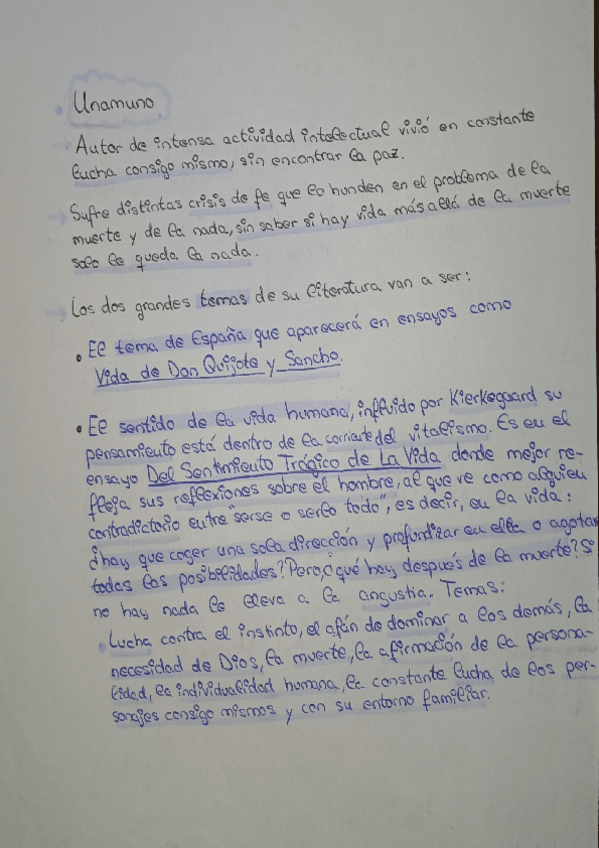 Unamuno.
Autor de intensa actividad intelectual vivió en constante
lucha consigo mismo, sin encontrar la paz.
Sufre distintas crisis de fe que lo hunden en el problema de la
muerte y de la nada, sin saber si hay vida más allá de la muerte
solo le queda la nada.
Los dos grandes temas de su literatura van a ser:
• El tema de España que aparecerá en ensayos como
Vida de Don Quijote y Sancho.
• El sentido de la vida humana, influido por Kierkegaard su
pensamiento está dentro de la corriente del vitalismo. Es en el
ensayo Del Sentimiento Trágico de La Vida donde mejor re-
fleja sus reflexiones sobre el hombre, al que ve como alguien
contradictorio entre "serse o serlo todo", es decir, en la vida:
¿hay que coger una sola dirección y profundizar en ella o agotar
todas las posibilidades? Pero, ¿qué hay después de la muerte? Si
no hay nada le lleva a la angustia. Temas:
Lucha contra el instinto, el afán de dominar a los demás, la
necesidad de Dios, la muerte, la afirmación de la persona-
lidad, la individualidad humana, la constante lucha de los per-
sonajes consigo mismos y con su entorno familiar.